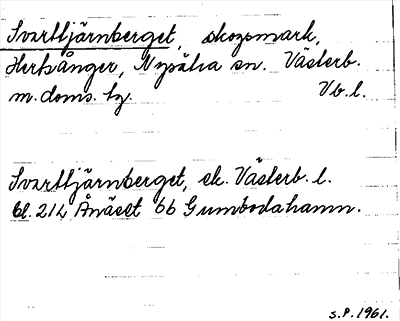 Svarttjärnberget, skogsmark,
Hertsånger, Nysätra sn. Västerb.
m. doms. tg. Vb. l.
Svarttjärnberget, ek. Västerb. l.
bl. 212 Ånäset 6b Gumbodahamn.
S.P. 1961.